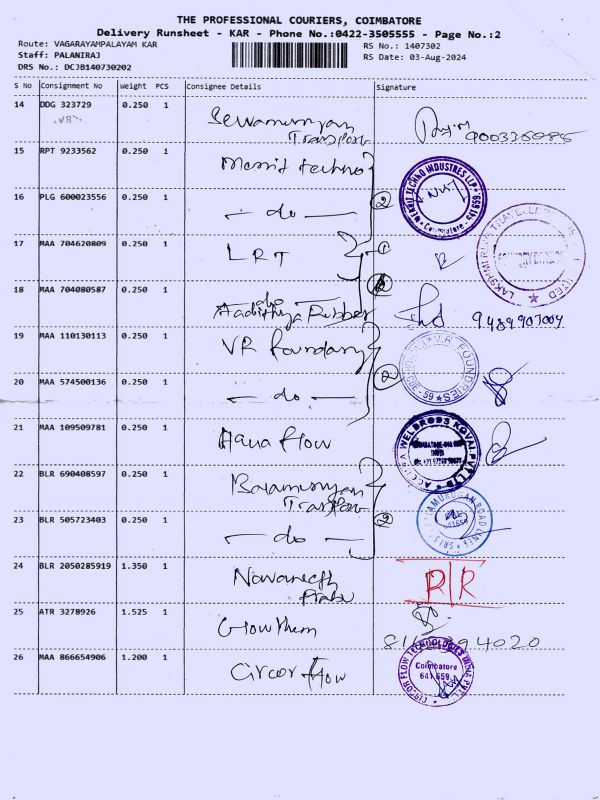 THE PROFESSIONAL COURIERS, COIMBATORE
Delivery Runsheet - KAR - Phone No.:0422-3505555 - Page No.:2
Route: VAGARAYAMPALAYAM KAR
RS No.: 1407302
Staff: PALANIRAJ
RS Date: 03-Aug-2024
DRS No.: DCJB140730202
S No Consignment No Weight PCS Consignee Details Signature
14 DDG 323729 0.250 1
Transport
15 RPT 9233562 0.250 1 Merrit techno
MERRIT TECHNO INDUSTRIES LLP
Coimbatore
16 PLG 600023556 0.250 1 - do - 2
17 MAA 704620809 0.250 1 LRT 1
18 MAA 704080587 0.250 1
Aadithya Rubber 9489907004
19 MAA 110130113 0.250 1 VR Foundary
V.R. FOUNDRIES
20 MAA 574500136 0.250 1 - do - 2
21 MAA 109509781 0.250 1 Aqua flow
WELDRODS KOVAI PVT LTD
22 BLR 690408597 0.250 1 Balamurugan
Transport
23 BLR 505723403 0.250 1 - do - 2
24 BLR 2050285919 1.350 1 Navaneeth
R|R
25 ATR 3278926 1.525 1
26 MAA 866654906 1.200 1 Circor flow
CIRCOR FLOW TECHNOLOGIES INDIA PVT.
Coimbatore
641 659